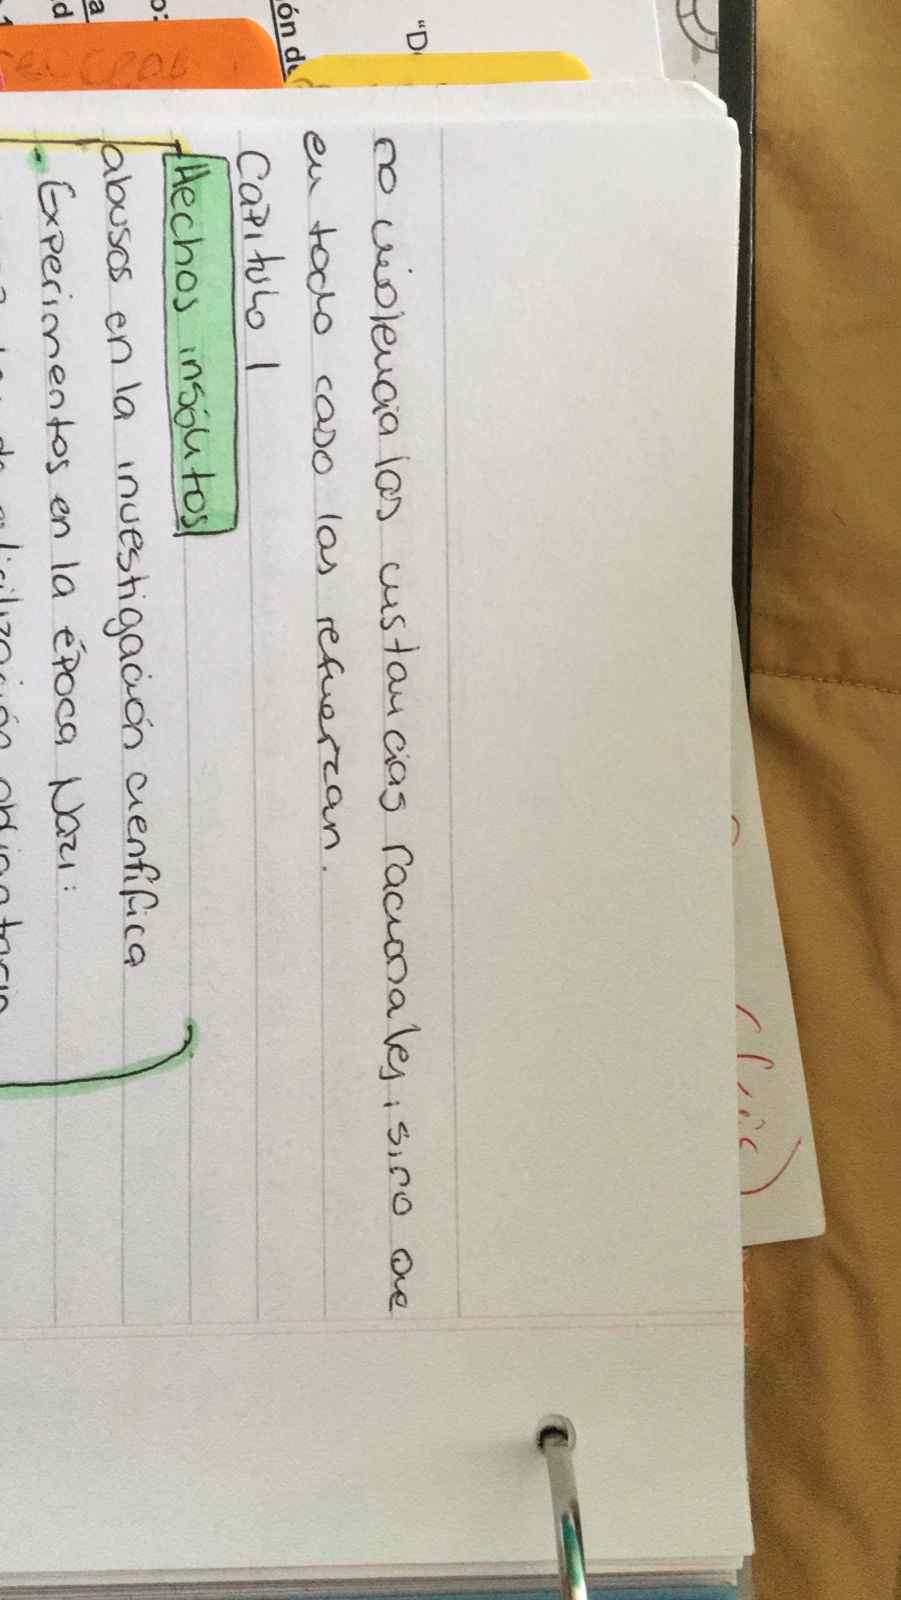 no violencia las instancias racionales, sino que
en todo caso las refuerzan.
Capitulo 1
Hechos insólitos
abusos en la investigación científica
• Experimentos en la época Nazi: